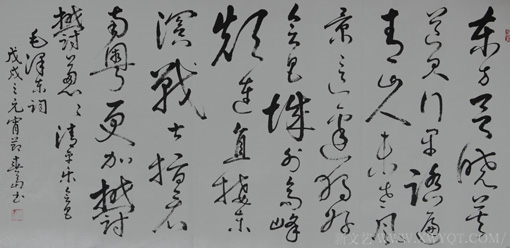 东方欲晓莫
道君行早踏遍
青山人未老风
景这边独好
会昌城外高峰
颠连直接东
溟戰士指看
南粤更加欝
欝葱〻清平乐会昌
毛泽东词
戊戌之元宵节春山书
WWW.XWYQT.COM